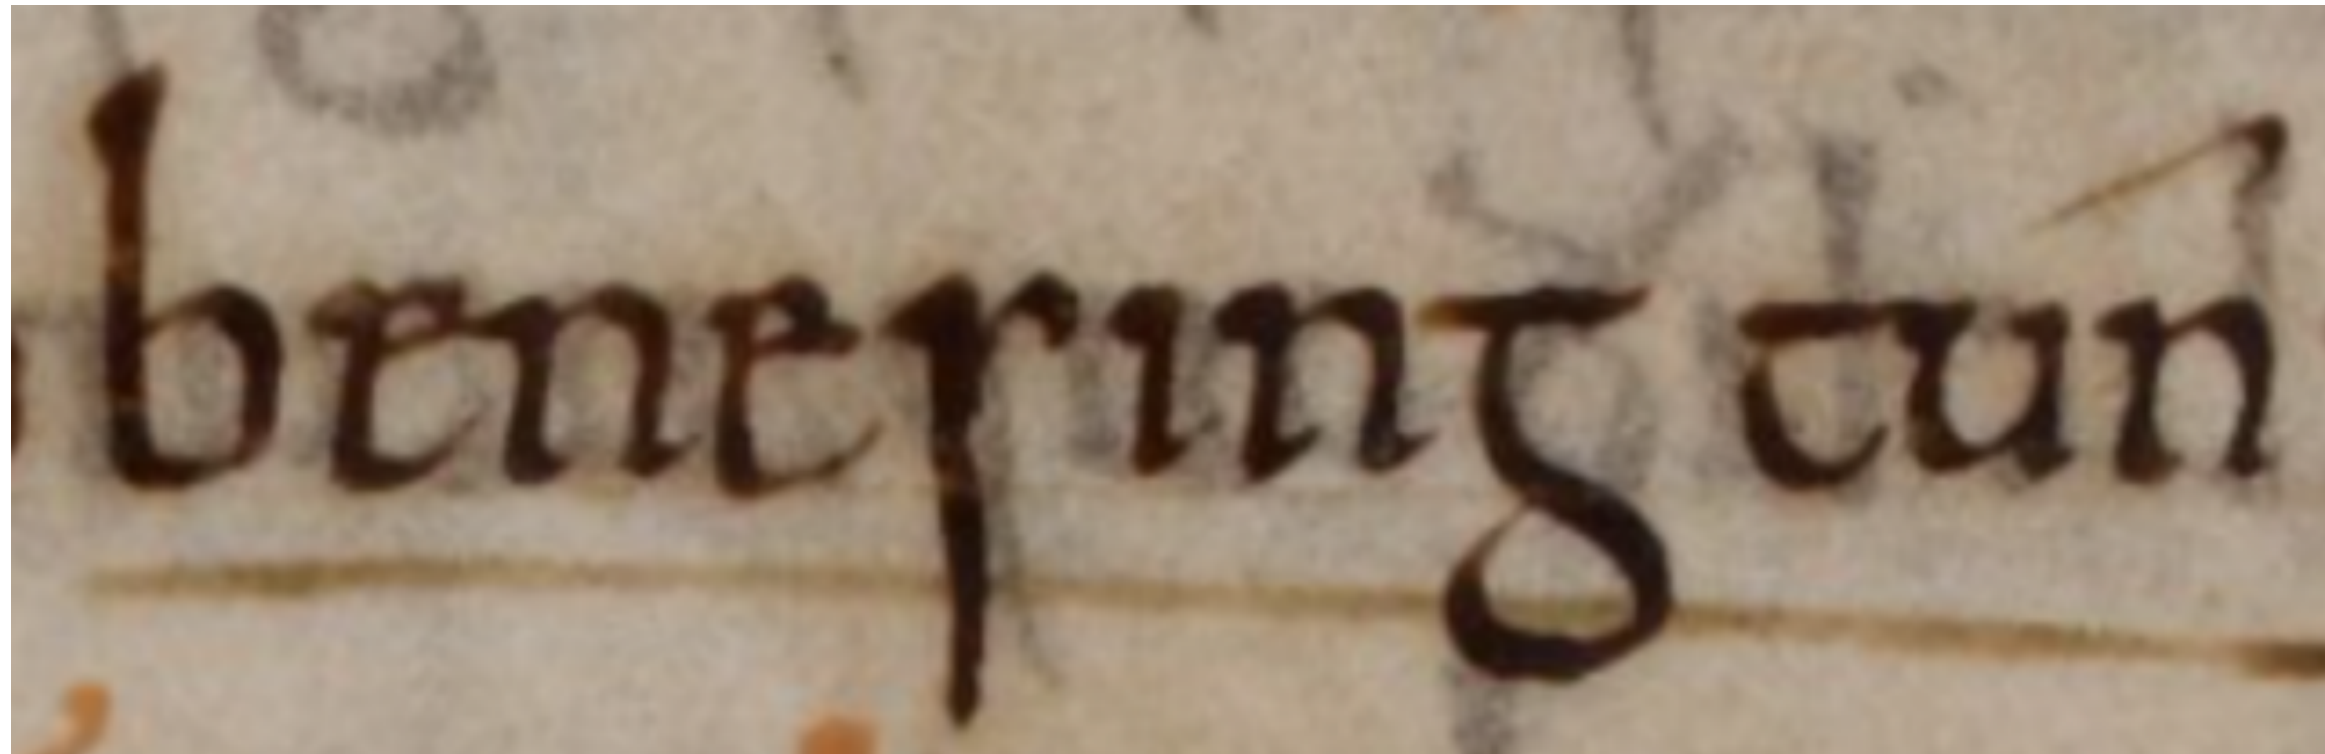 benesing tún